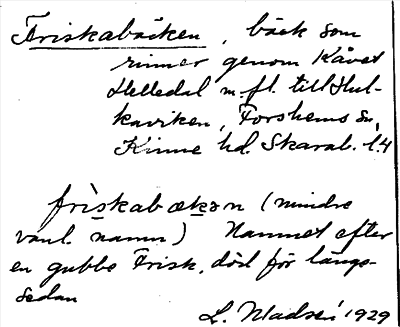 Friskabäcken, bäck som
rinner genom Kåvet
Helledal m. fl. till Hul-
kaviken, Forshems sn,
Kinne hd. Skarab. l.
friskabækən (mindre
vanl. namn) Namnet efter
en gubbe Frisk, död för längs-
sedan
L. Madsén 1929